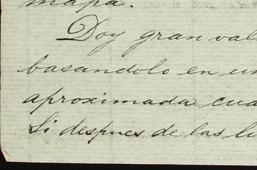 mapa.
Doy gran val
basandolo en un
aproximada cua
Si despues de las lu